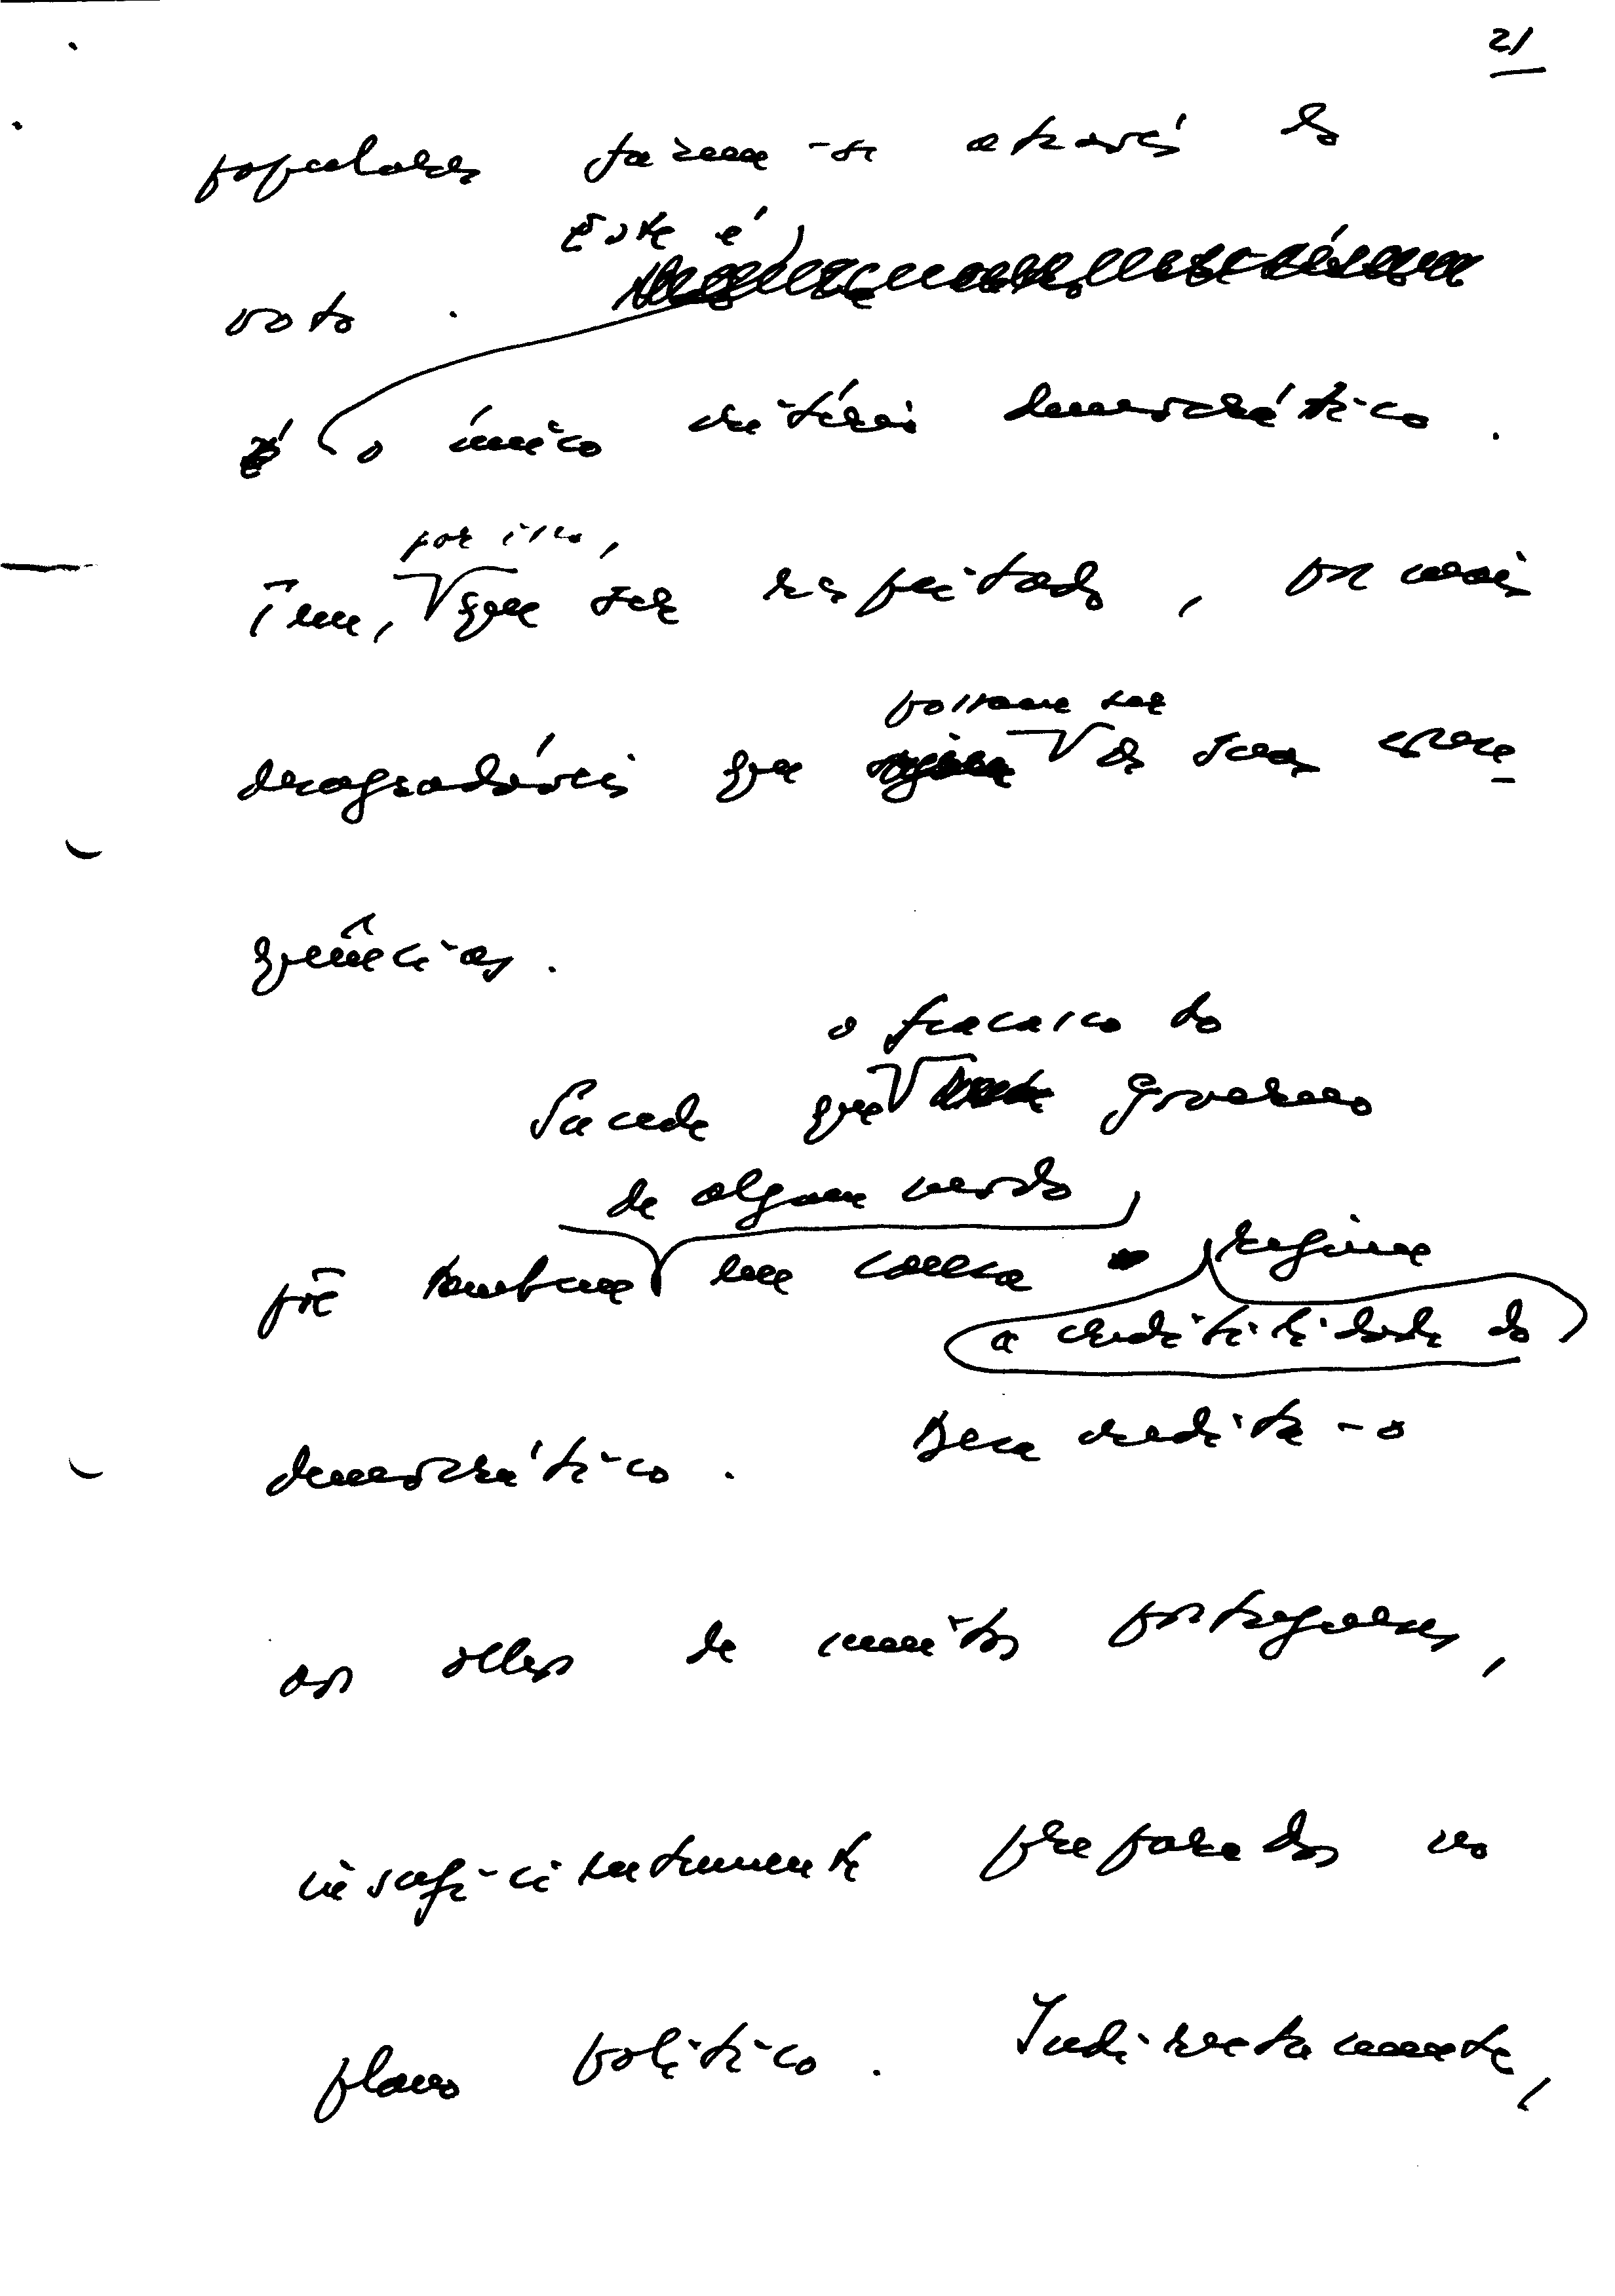 21
populares fazem-se através do
Este é
voto.
o único critério democrático.
por isso,
Tem, que ser respeitado, por mais
possam ser
desagradáveis que as suas conse-
quências.
o fracasso do
Sucede que Governo
de algum modo
põe também em causa regime
a credibilidade do
democrático. Desacredita-o
aos olhos de muitos portugueses,
insuficientemente preparados no
plano político. Indirectamente,